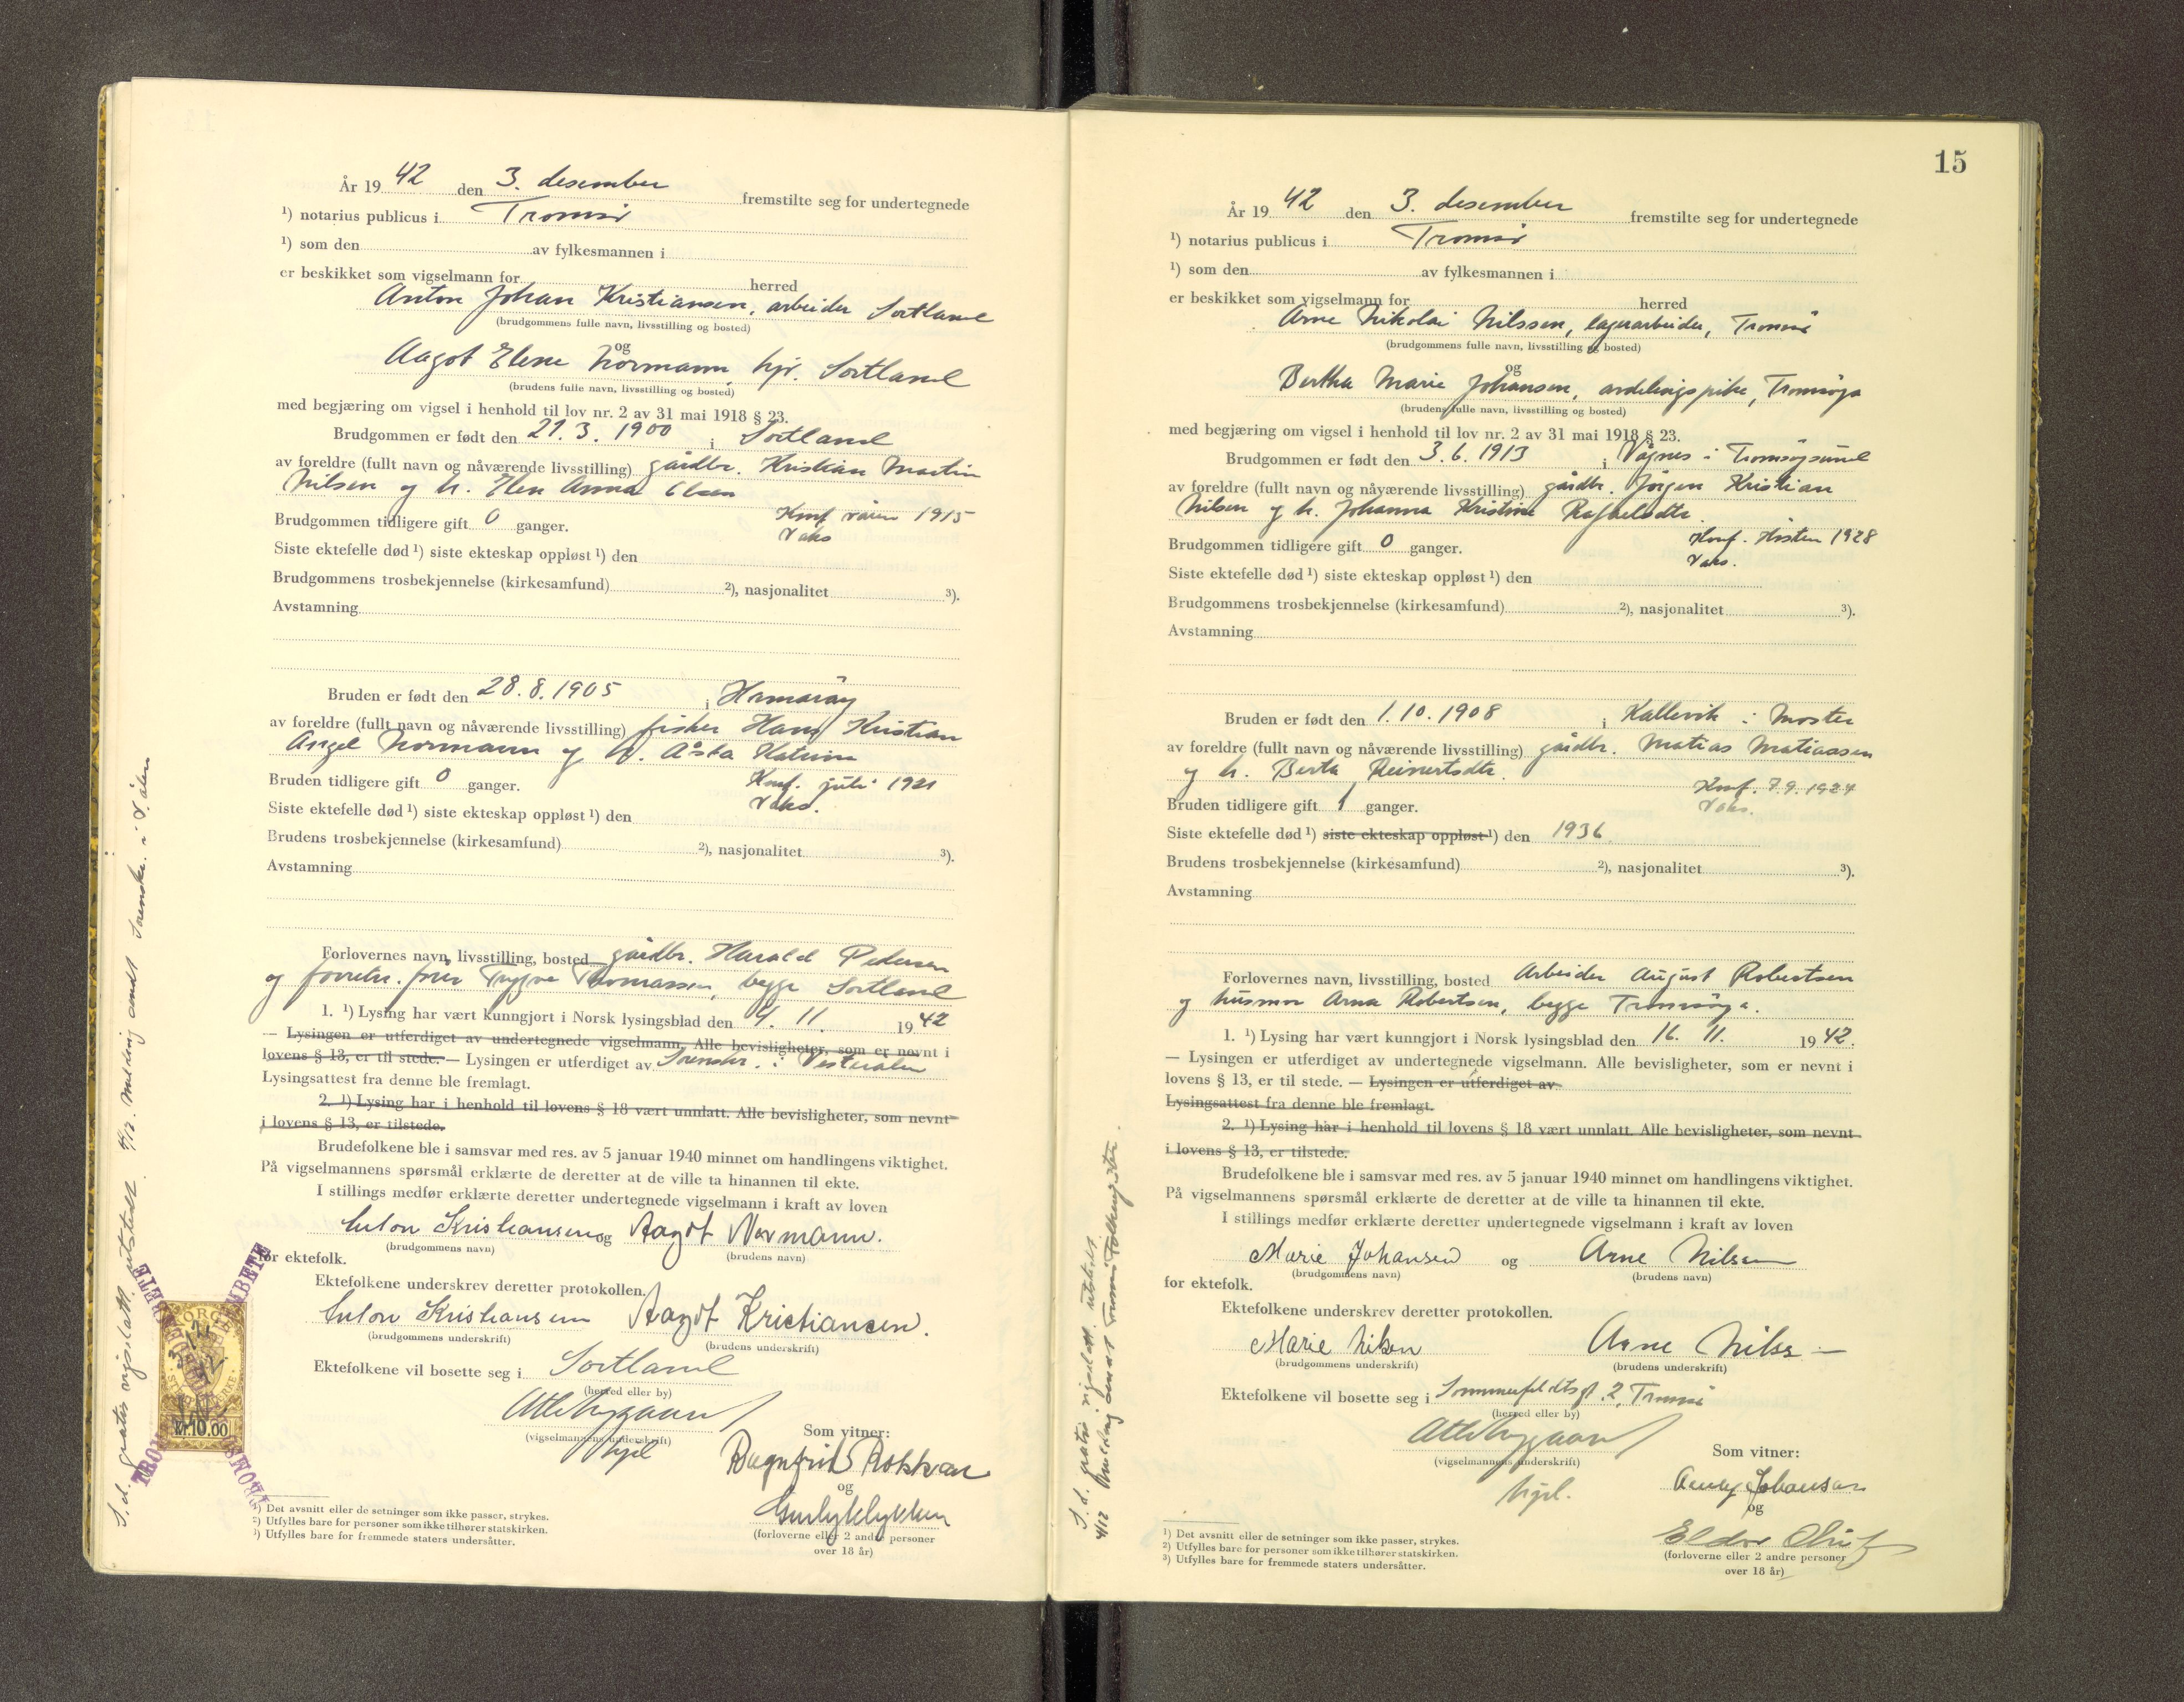 År 19 42 den 3. desember fremstilte seg for undertegnede
¹) notarius publicus i Tromsö
¹) som den av fylkesmannen i
er beskikket som vigselmann for herred
Anton Johan Kristiansen, arbeider Sortland
(brudgommens fulle navn, livsstilling og bosted)
og
Aagot Elene Normann, hjv. Sortland
(brudens fulle navn, livsstilling og bosted)
med begjæring om vigsel i henhold til lov nr. 2 av 31 mai 1918 § 23.
Brudgommen er født den 21. 3. 1900 i Sortland
av foreldre (fullt navn og nåværende livsstilling) gårdbr. Kristian Martin
Nilsen og h. Elen Anna Olsen
Brudgommen tidligere gift 0 ganger. Konf våren 1915
Vaks
Siste ektefelle død ¹) siste ekteskap oppløst ¹) den
Brudgommens trosbekjennelse (kirkesamfund) ²), nasjonalitet ³).
Avstamning
Bruden er født den 28. 8. 1905 i Hamaröy
av foreldre (fullt navn og nåværende livsstilling) fisker Hans Kristian
Angel Normann og h. Åsta Katrine
Bruden tidligere gift 0 ganger. Konf. juli 1921
Vaks.
Siste ektefelle død ¹) siste ekteskap oppløst ¹) den
Brudens trosbekjennelse (kirkesamfund) ²), nasjonalitet ³).
Avstamning
Forlovernes navn, livsstilling, bosted gårdbr. Harald Pedersen
og forretn. förer Trygve Thomassen, begge Sortland
1. ¹) Lysing har vært kunngjort i Norsk lysingsblad den 4. 11. 19 42
— Lysingen er utferdiget av undertegnede vigselmann. Alle bevisligheter, som er nevnt i
lovens § 13, er til stede. — Lysingen er utferdiget av Sorenskr. i Vesterålen
Lysingsattest fra denne ble fremlagt.
2. ¹) Lysing har i henhold til lovens § 18 vært unnlatt. Alle bevisligheter, som nevnt
i lovens § 13, er tilstede.
Brudefolkene ble i samsvar med res. av 5 januar 1940 minnet om handlingens viktighet.
På vigselmannens spørsmål erklærte de deretter at de ville ta hinannen til ekte.
I stillings medfør erklærte deretter undertegnede vigselmann i kraft av loven
Anton Kristiansen og Aagot Normann.
(brudgommens navn) (brudens navn)
for ektefolk.
Ektefolkene underskrev deretter protokollen.
Anton Kristiansen Aagot Kristiansen.
(brudgommens underskrift) (brudens underskrift)
Ektefolkene vil bosette seg i Sortland
(herred eller by)
(vigselmannens underskrift)
Som vitner:
og
(forloverne eller 2 andre personer
over 18 år)
¹) Det avsnitt eller de setninger som ikke passer, strykes.
²) Utfylles bare for personer som ikke tilhører statskirken.
³) Utfylles bare for fremmede staters undersåtter.
S. d. gratis vigselatt. utstedt. 4/12. melding sendt Sorenskr. i V.ålen
NORGE
Kr 10.00
15
År 19 42 den 3. desember fremstilte seg for undertegnede
¹) notarius publicus i Tromsö
¹) som den av fylkesmannen i
er beskikket som vigselmann for herred
Arne Nikolai Nilssen, lagerarbeider, Tromsö
(brudgommens fulle navn, livsstilling og bosted)
og
Bertha Marie Johansen, avdelingspike, Tromsöya
(brudens fulle navn, livsstilling og bosted)
med begjæring om vigsel i henhold til lov nr. 2 av 31 mai 1918 § 23.
Brudgommen er født den 3. 6. 1913 i Vågnes i Tromsöysund
av foreldre (fullt navn og nåværende livsstilling) gårdbr. Jörgen Kristian
Nilsen og h. Johanna Kristine Rafaelsdtr.
Brudgommen tidligere gift 0 ganger. Konf. Hösten 1928
Vaks.
Siste ektefelle død ¹) siste ekteskap oppløst ¹) den
Brudgommens trosbekjennelse (kirkesamfund) ²), nasjonalitet ³).
Avstamning
Bruden er født den 1. 10. 1908 i Kallevik i Moster
av foreldre (fullt navn og nåværende livsstilling) gårdbr. Matias Matiassen
og h. Berta Reinertsdtr.
Bruden tidligere gift 1 ganger. Konf. 7.9.1924
Vaks.
Siste ektefelle død ¹) siste ekteskap oppløst ¹) den 1936
Brudens trosbekjennelse (kirkesamfund) ²), nasjonalitet ³).
Avstamning
Forlovernes navn, livsstilling, bosted Arbeider August Robertsen
og husmor Arna Robertsen, begge Tromsöya.
1. ¹) Lysing har vært kunngjort i Norsk lysingsblad den 16. 11. 19 42.
— Lysingen er utferdiget av undertegnede vigselmann. Alle bevisligheter, som er nevnt i
lovens § 13, er til stede. — Lysingen er utferdiget av
Lysingsattest fra denne ble fremlagt.
2. ¹) Lysing har i henhold til lovens § 18 vært unnlatt. Alle bevisligheter, som nevnt
i lovens § 13, er tilstede.
Brudefolkene ble i samsvar med res. av 5 januar 1940 minnet om handlingens viktighet.
På vigselmannens spørsmål erklærte de deretter at de ville ta hinannen til ekte.
I stillings medfør erklærte deretter undertegnede vigselmann i kraft av loven
Marie Johansen og Arne Nilsen
(brudgommens navn) (brudens navn)
for ektefolk.
Ektefolkene underskrev deretter protokollen.
Marie Nilsen Arne Nilsen
(brudgommens underskrift) (brudens underskrift)
Ektefolkene vil bosette seg i Sommerfeldtsgt. 2, Tromsö
(herred eller by)
(vigselmannens underskrift)
Som vitner:
Johansen
og
(forloverne eller 2 andre personer
over 18 år)
¹) Det avsnitt eller de setninger som ikke passer, strykes.
²) Utfylles bare for personer som ikke tilhører statskirken.
³) Utfylles bare for fremmede staters undersåtter.
S. d. gratis vigselatt. utstedt.
4/12 melding sendt Tromsö Folkeregister.